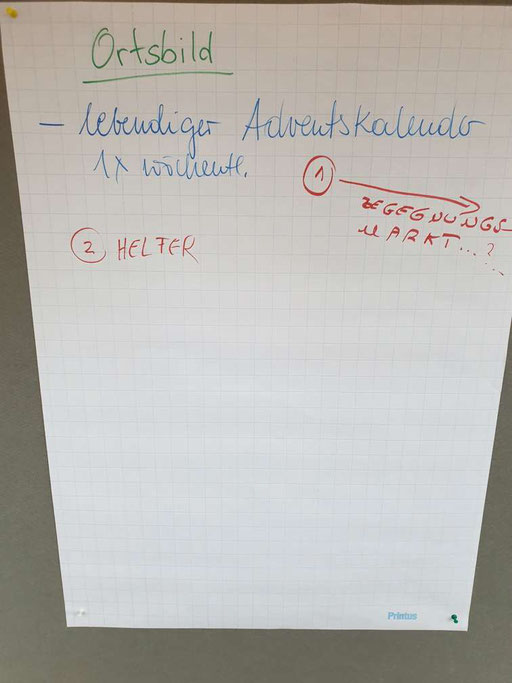 Ortsbild
– lebendiger Adventskalender
1x wöchentl.
① →
BEGEGNUNGS-
MARKT...?...
② HELFER
Printus